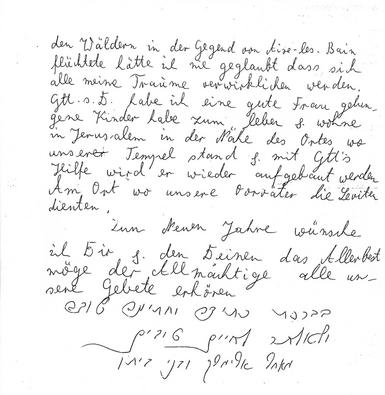 den Wäldern in der Gegend von Aixe-les. Bain
flüchtete hätte ich nie geglaubt dass sich
alle meine Traume verwirklichen werden.
Gtt. s. D. habe ich eine gute Frau gelun-
gene Kinder habe zum leben & wohne
in Jerusalem in der Nähe des Ortes wo
unserer Tempel stand & mit Gtt's
Hilfe wird er wieder aufgebaut werden
Am Ort wo unsere Vorväter die Leviten
dienten.
Zum Neuen Jahre wünsche
ich Dir & den Deinen das Allerbest
möge der Allmächtige alle un-
sere Gebete erhören
בברכת כתיבה וחתימה טובה
לחיים טובים
אלימלך ובני ביתו